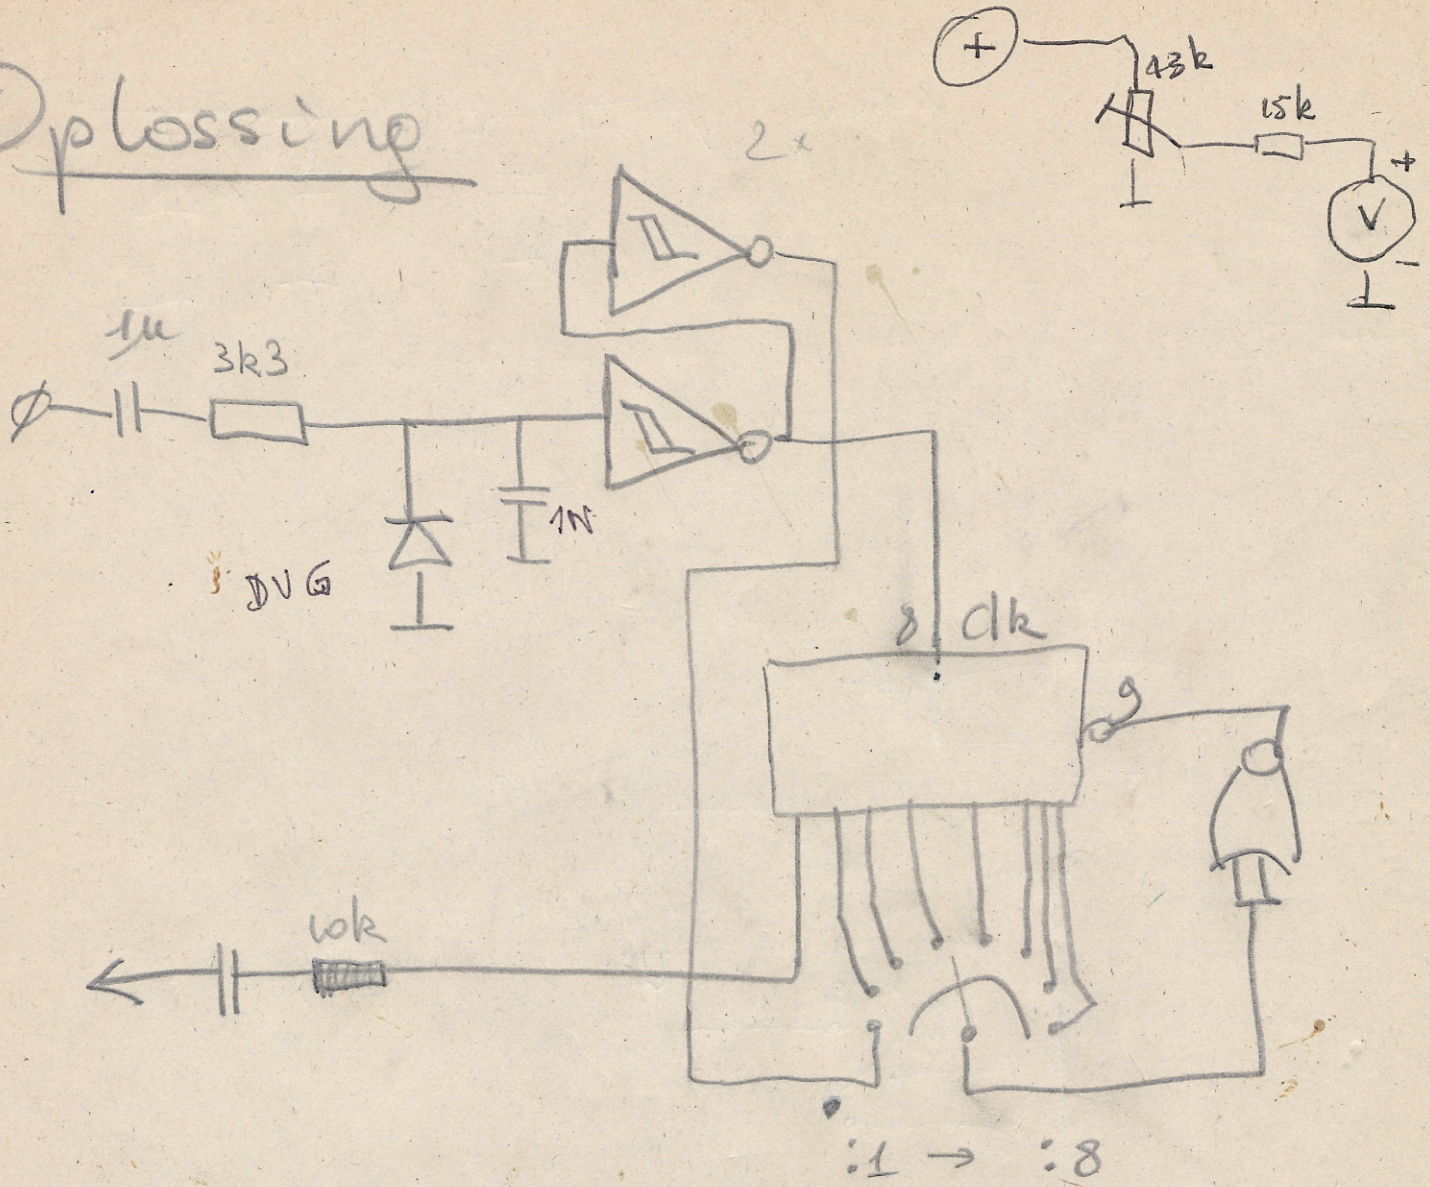 Oplossing
2x
+
43k
15k
+
V
-
1µ
3k3
1N
DUG
8 Clk
9
10k
:1 → :8